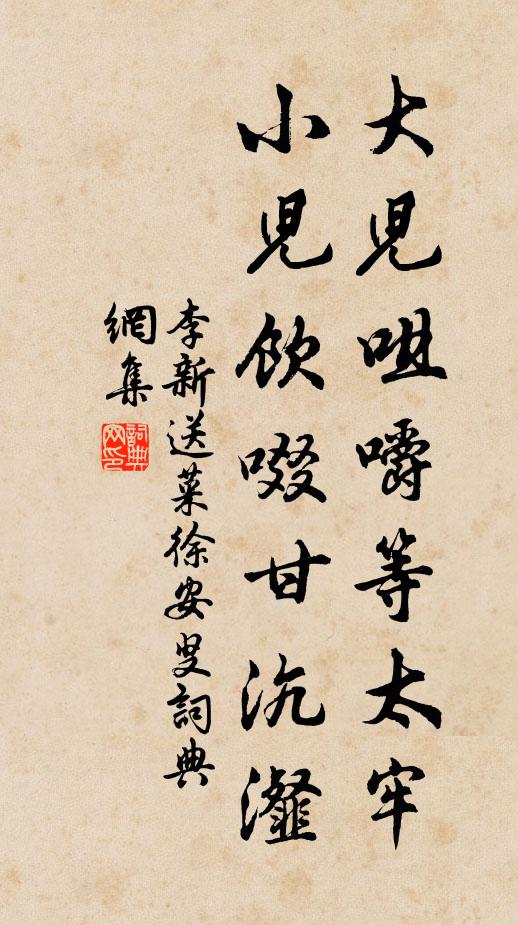 大児咀嚼等太牢
小児飲啜甘沆瀣
李新送菜徐安叟詞典
網集
詞典
网印